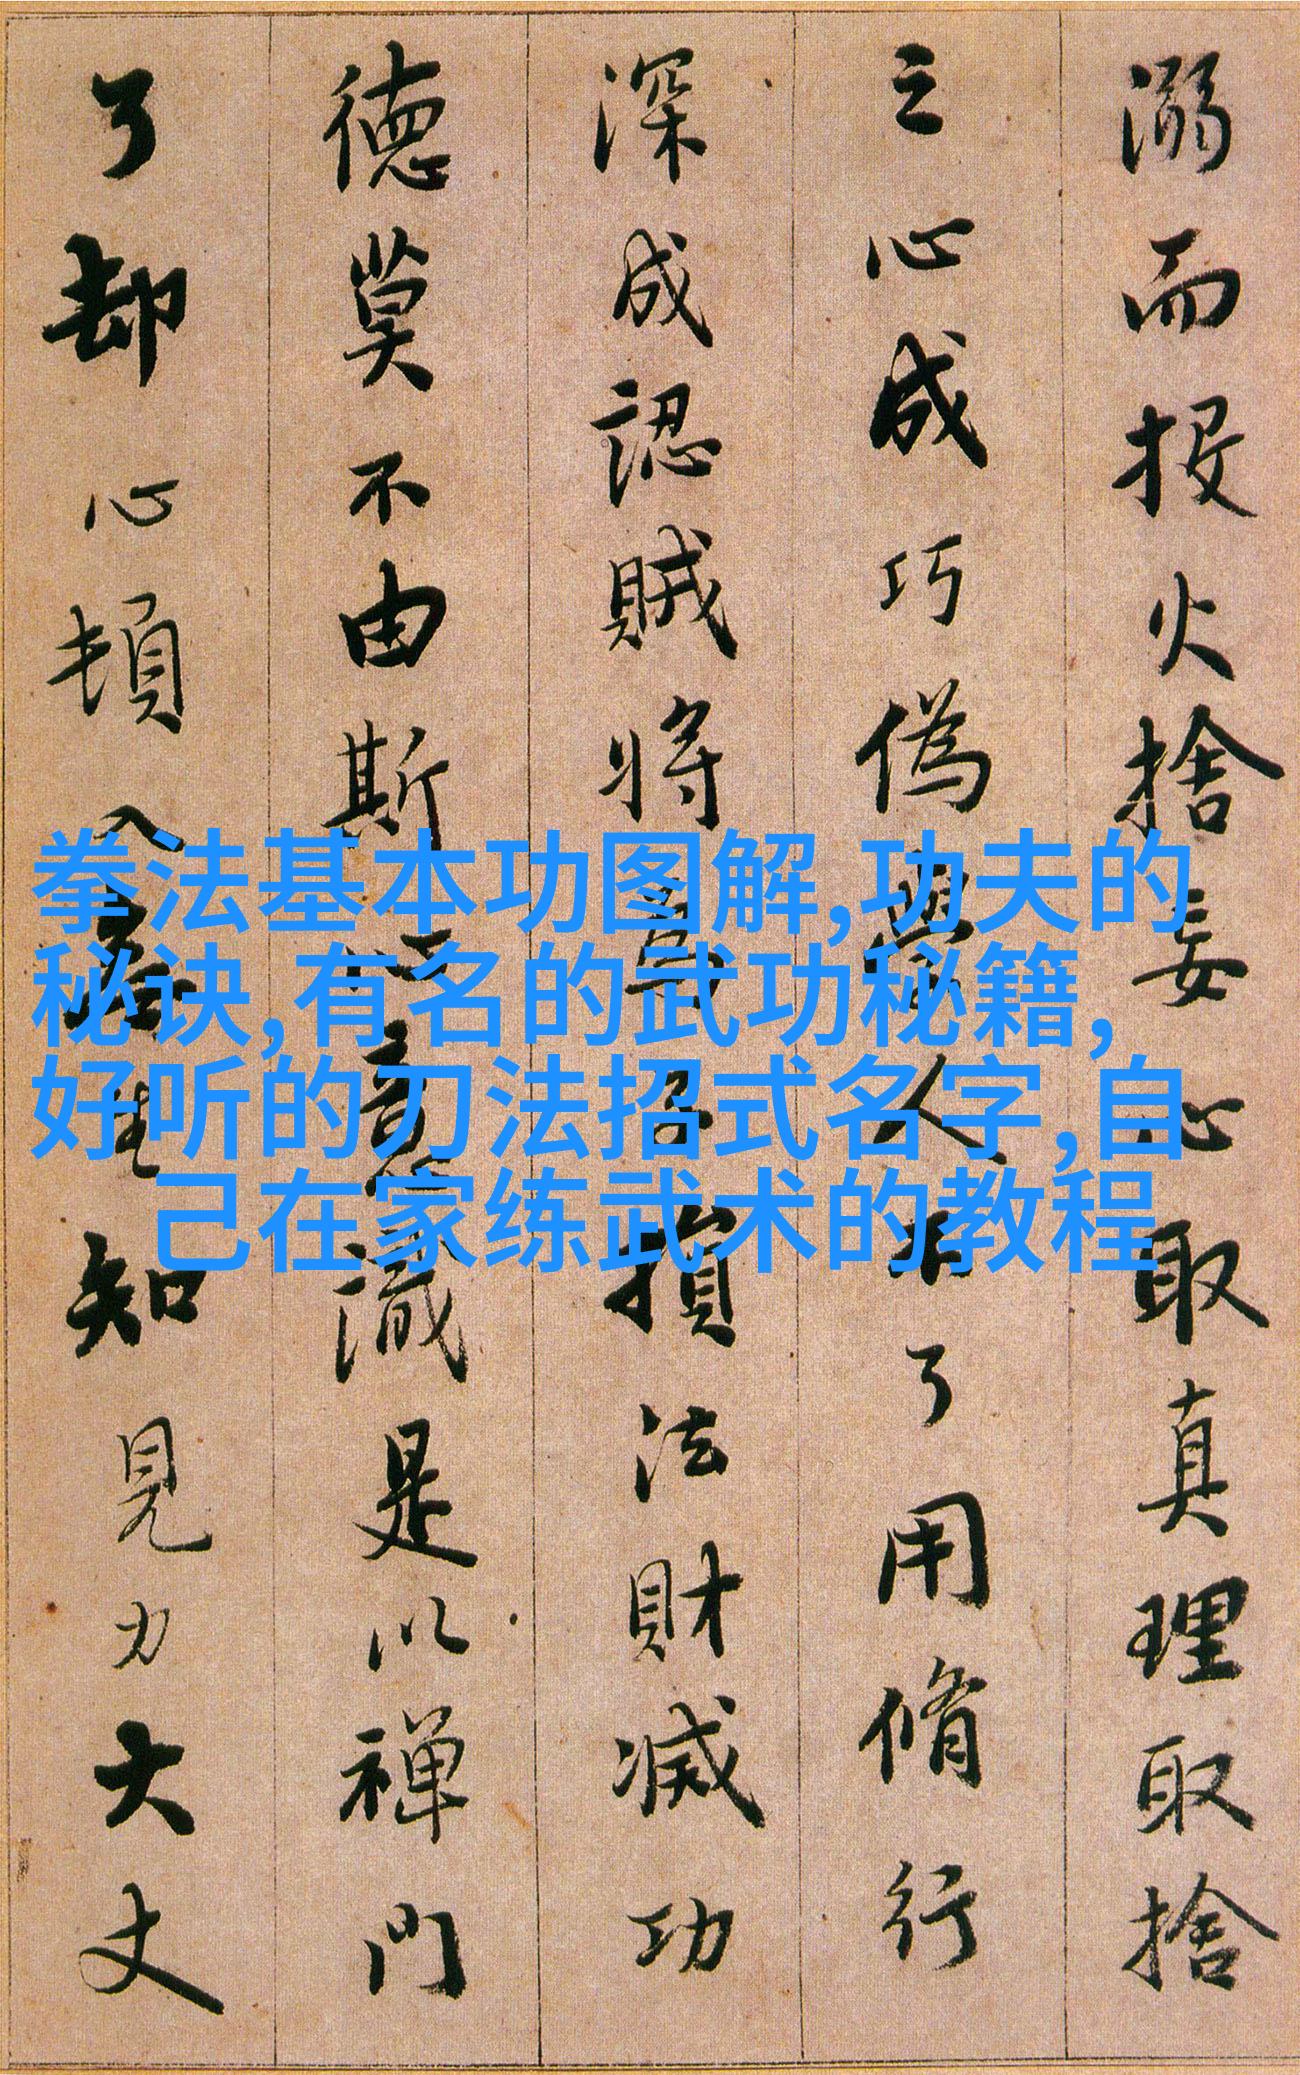 拳法基本功图解,功夫的
秘诀,有名的武功秘籍,
好听的刀法招式名字,自
己在家练武术的教程
溺而投火捨妄心取真理取捨
之心成巧偽學人不了用脩行
深成認賊將為子損法財滅功
德莫不由斯心意識是以禪門
了却心頓入無生知見力大丈